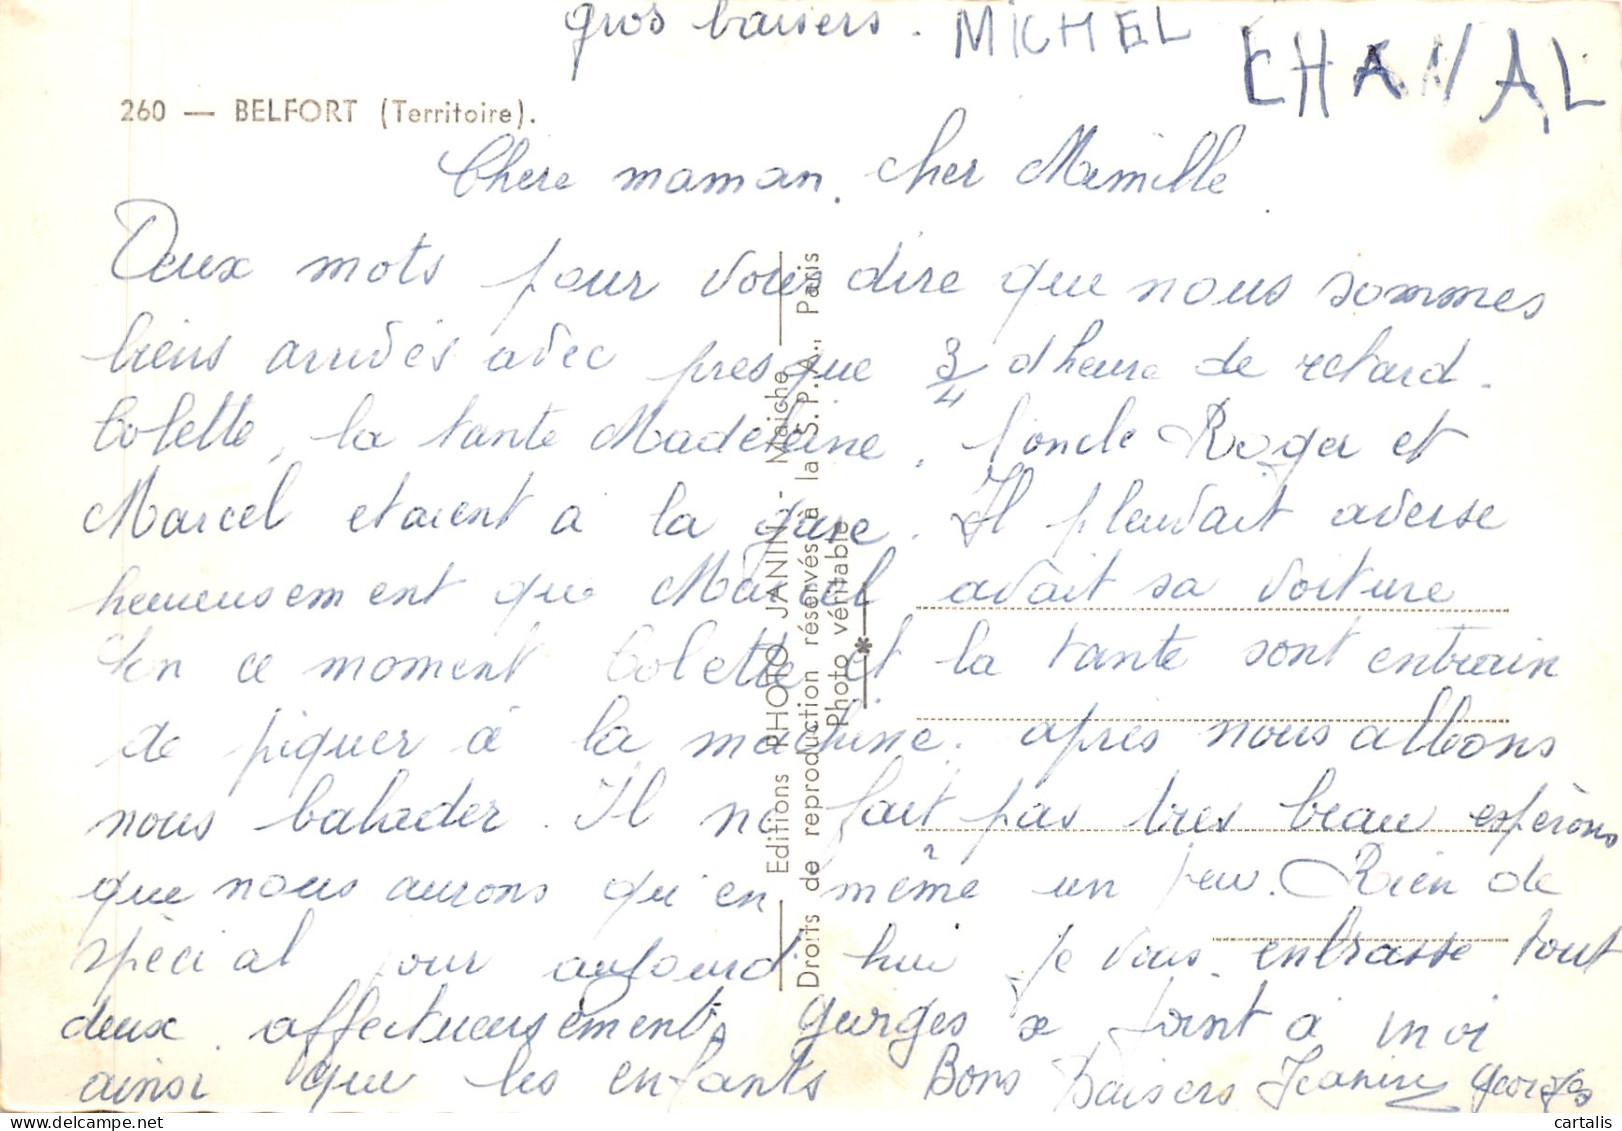 gros baisers. MICHEL
CHANAL
260 — BELFORT (Territoire).
Chere maman. cher Mimille
Deux mots pour vous dire que nous sommes
biens arrivés avec presque 3/4 d'heure de retard.
Colette, la tante Madeleine, l'oncle Roger et
Marcel etaient a la gare. Il pleuvait averse
heureusement que Marcel avait sa voiture
En ce moment Colette et la tante sont entrain
de piquer à la machine. après nous allons
nous balader. Il ne fait pas tres beau espérons
que nous aurons qu'en même un peu. Rien de
spécial pour aujourd'hui je vous embrasse tout
deux affectueusement. Georges se joint a moi
ainsi que les enfants Bons Baisers Jeanine Georges
Editions PHOTO JANIN - Maiche
Droits de reproduction réservés à la S.P.A., Paris
Photo véritable
cartalis
www.delcampe.net